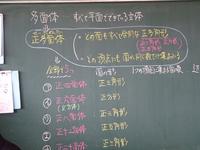 多面体 … すべて平面でできている立体
正多面体
・どの面もすべて合同な正多角形
正三角形, 正方形
正五角形
・どの頂点にも面が同じ数だけ集まる
全部で5つ
面の形
1つの頂点に集まる面の数
① 正四面体 正三角形
② 正六面体 正方形
(立方体)
③ 正八面体 正三角形
④ 正十二面体 正五角形
⑤ 正二十面体 正三角形